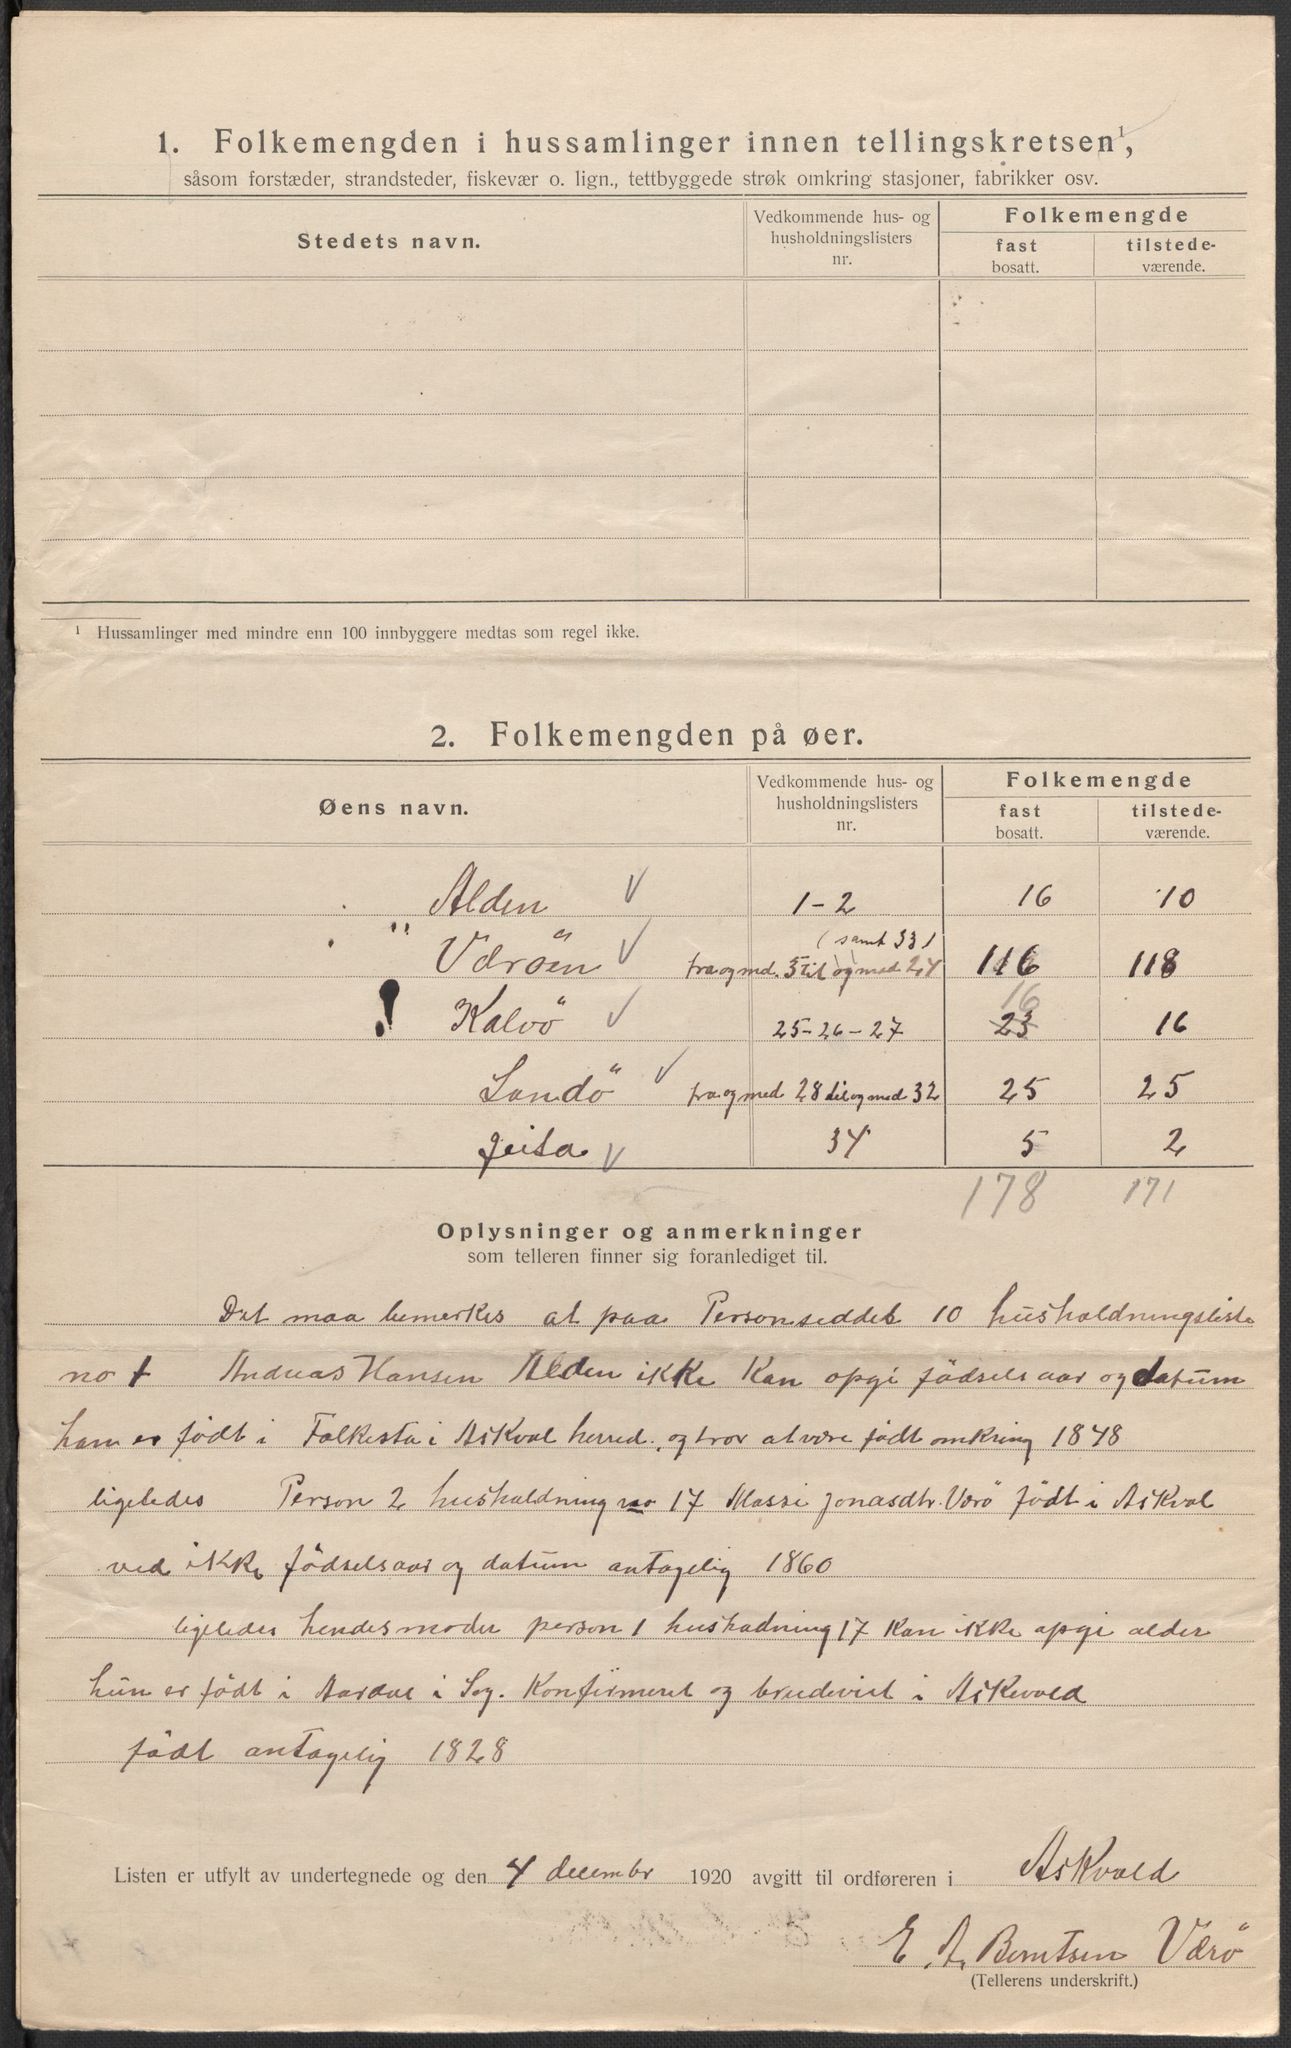 1. Folkemengden i hussamlinger innen tellingskretsen¹,
såsom forstæder, strandsteder, fiskevær o. lign., tettbyggede strøk omkring stasjoner, fabrikker osv.
Stedets navn.
Vedkommende hus- og husholdningslisters nr.
Folkemengde
fast bosatt.
tilstede-værende.
¹ Hussamlinger med mindre enn 100 innbyggere medtas som regel ikke.
2. Folkemengden på øer.
Øens navn.
Vedkommende hus- og husholdningslisters nr.
Folkemengde
fast bosatt.
tilstede-værende.
Alden V 1-2 16 10
(samt 33)
" Værøen V fra og med 3 til og med 24 116 118
16
! Kalvö V 25-26-27 23 16
Sandö V fra og med 28 til og med 32 25 25
Jeita V 34 5 2
178 171
Oplysninger og anmerkninger
som telleren finner sig foranlediget til.
Det maa bemerkes at paa Personseddel 10 husholdningsliste
no 1 Andreas Hansen Alden ikke kan opgi födsels aar og datum
ham er födt i Folkesta i Askvol herred. og tror at være födt omkring 1848
ligeledes Person 2 husholdning no 17 Massi Jonasdtr. Værö födt i Askvol
ved ikke födselsaar og datum antagelig 1860
ligeledes hendes moder person 1 hushadning 17 kan ikke opgi alder
hun er födt i Aardal i Sog. Konfirmeret og brudeviet i Askevold
födt antagelig 1828
Listen er utfylt av undertegnede og den 4 decembr 1920 avgitt til ordføreren i Askvold
E. A. Berntsen Værö
(Tellerens underskrift.)